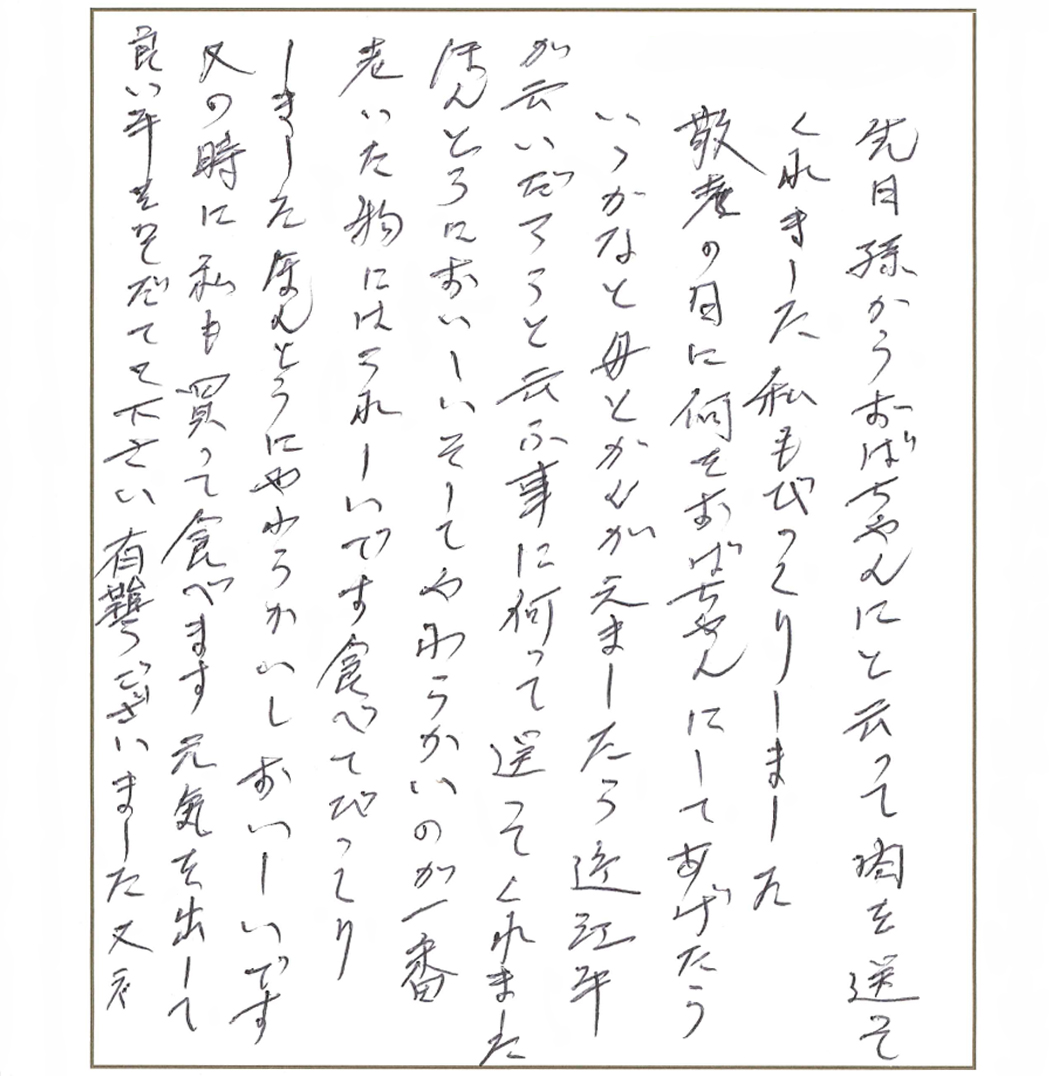 先日孫からおばちゃんにと云って肉を送って
くれました私もびっくりしました
敬老の日に何をおばちゃんにしてあげたら
いゝかなと母とかんが元ましたら近江牛
が云いだろうと云ふ事に何って送ってくれました
ほんとうにおいしいそしてやわらかいのが一番
老いた物にはうれしいです食べてびっくり
しました ほんとうにやわらかいし おいしいです
又の時に私も買って食べます 元気を出して
良い牛をそだてて下さい 有難うございました 又ネ